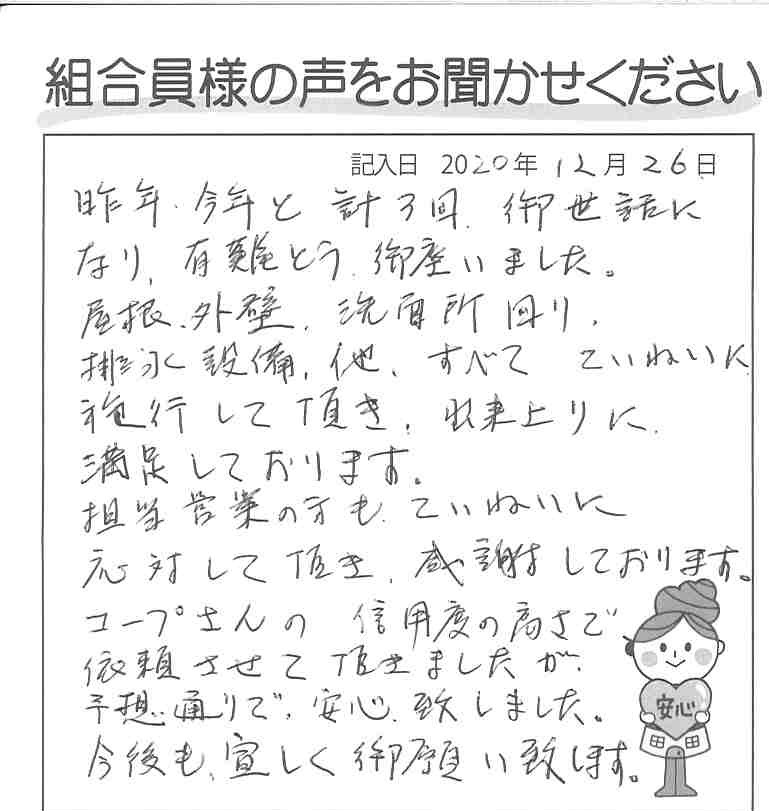 組合員様の声をお聞かせください
記入日 2020年 12月 26日
昨年、今年と 計3回、御世話に
なり、有難とう、御座いました。
屋根、外壁、洗面所回り、
排水設備、他、すべて ていねいに
施行して頂き、出来上りに、
満足しております。
担当営業の方も、ていねいに
応対して頂き、感謝しております。
コープさんの 信用度の高さで
依頼させて頂きましたが、
予想通りで、安心致しました。
今後も、宜しく御願い致します。
安心